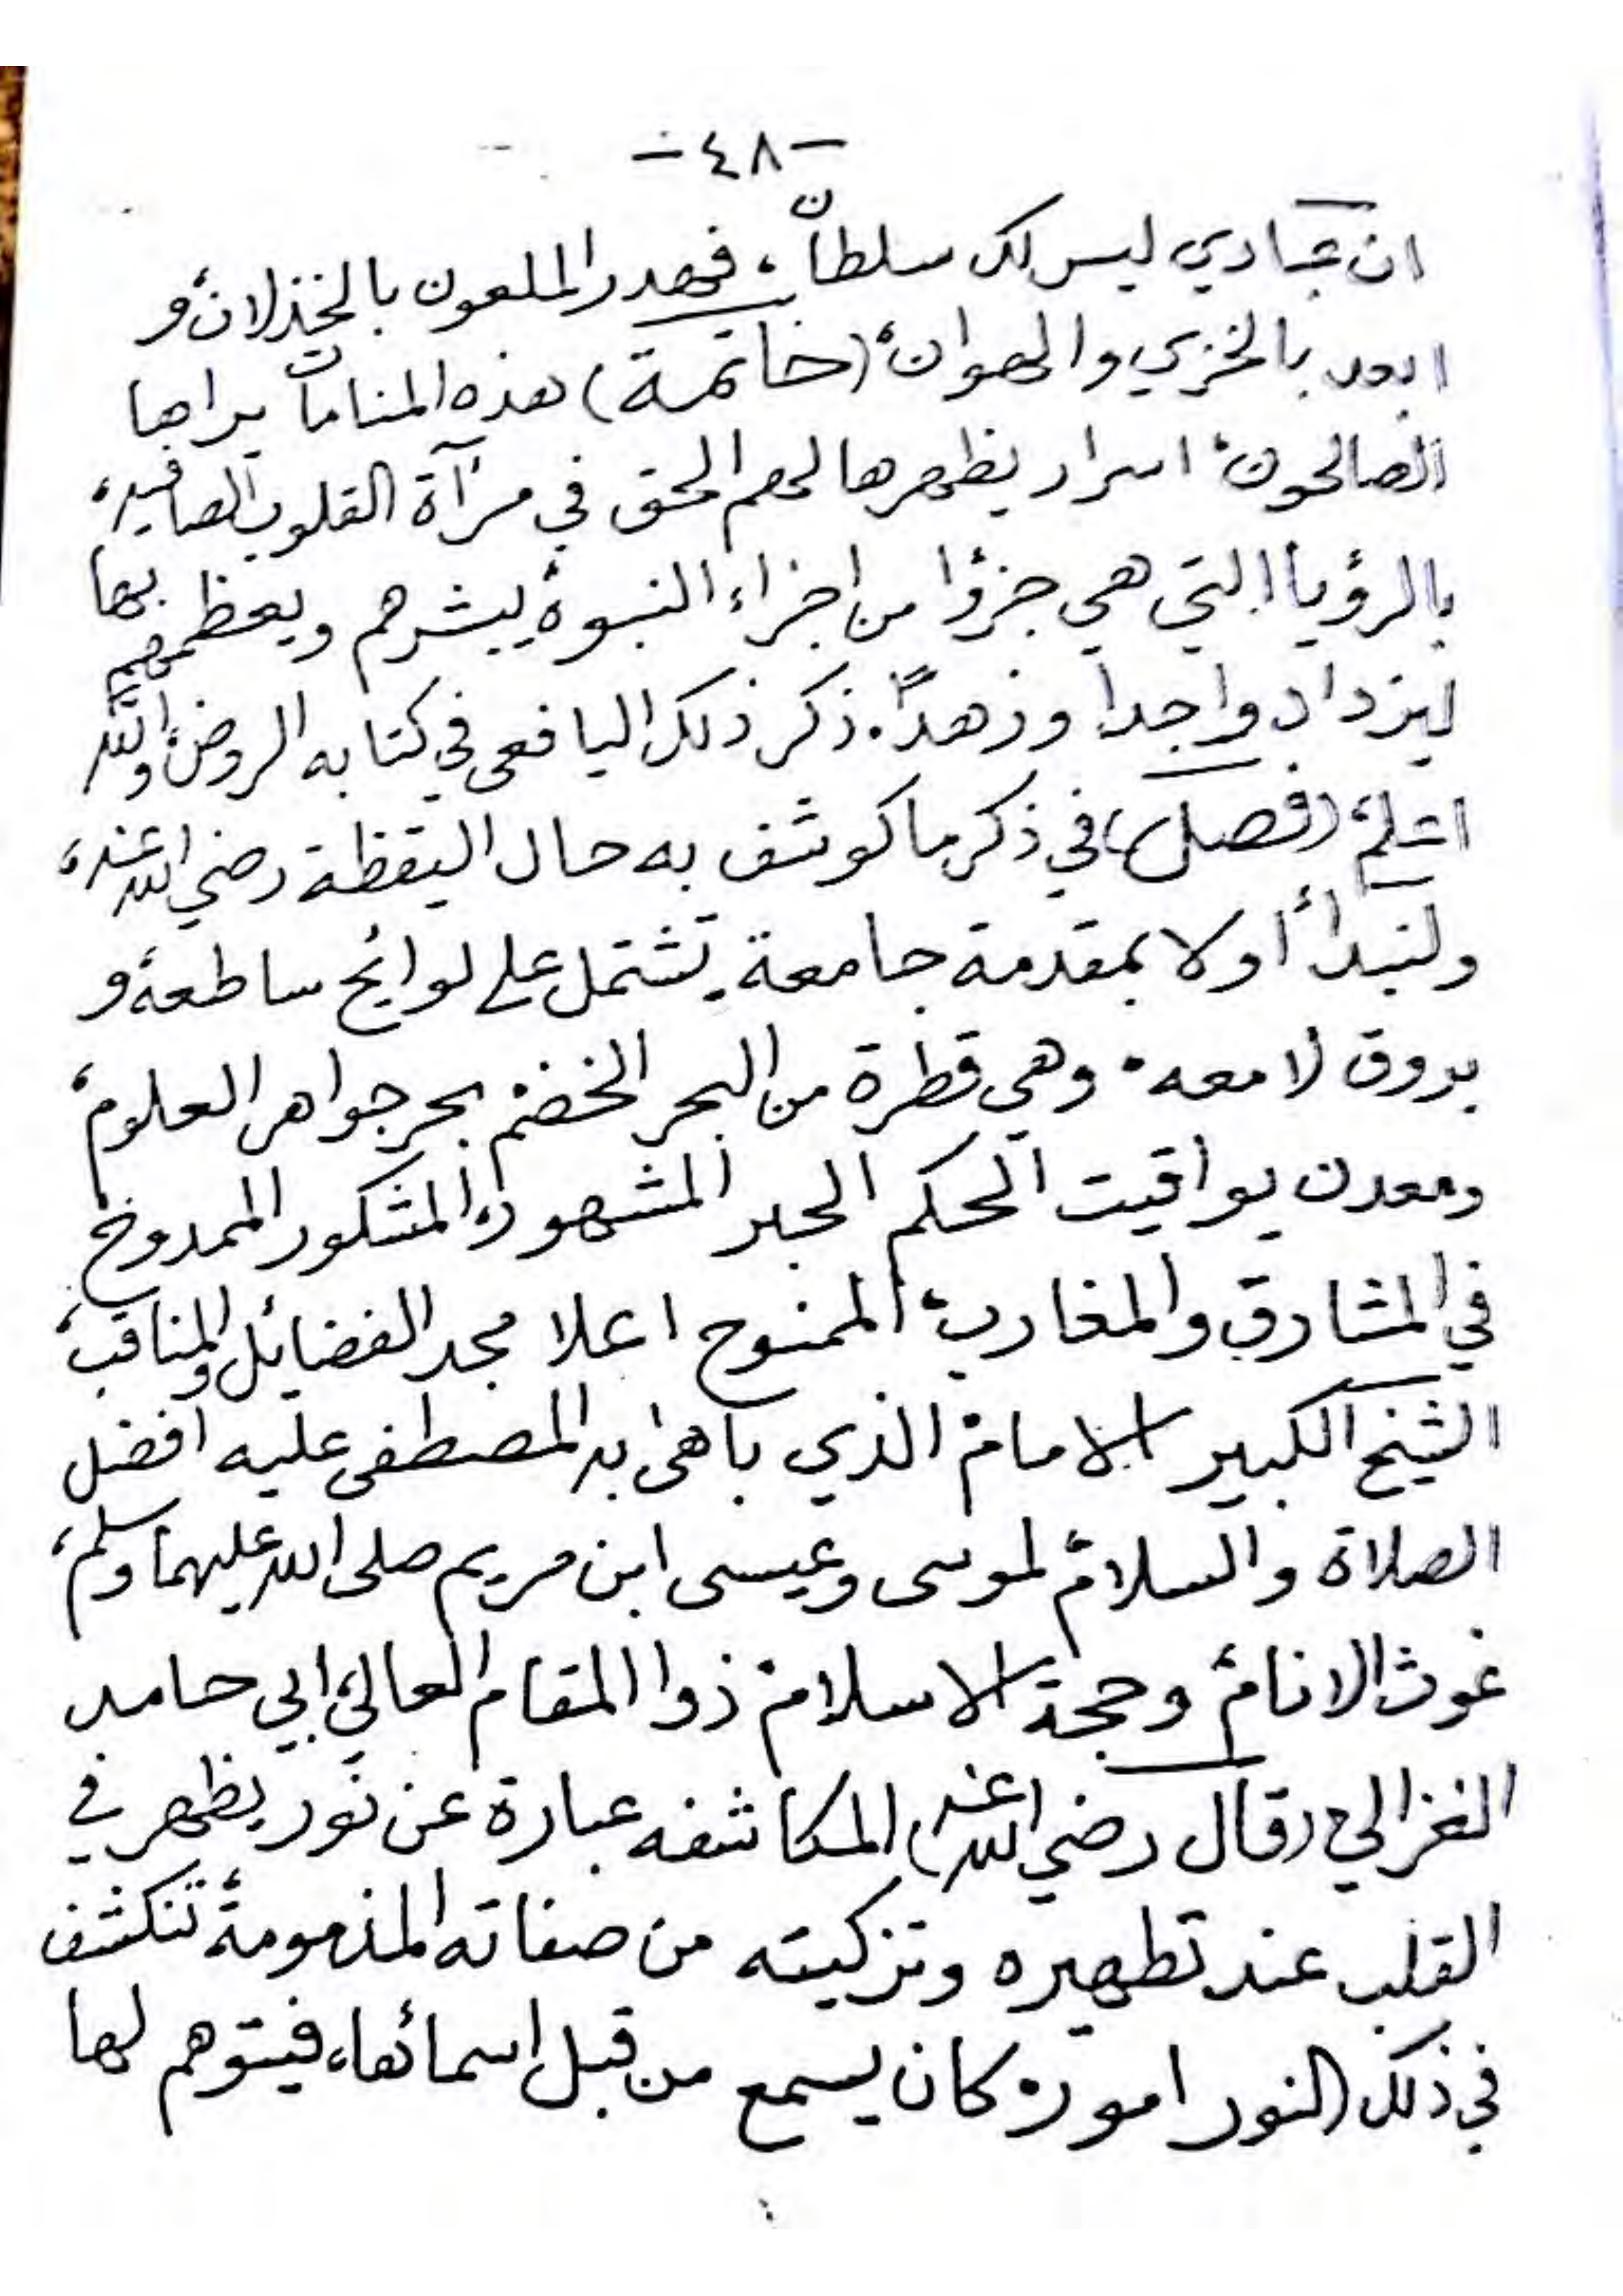 -٤٨-
ان عبادي ليس لك سلطان، فهدر الملعون بالخذلان، و
ابعد بالخزي والهوان، (خاتمة) هذه المنامات يراها
الصالحون، اسرار يظهرها لهم الحق في مرآة القلوب الصافيه،
بالرؤيا التي هي جزؤا من اجزاء النبوة، يبشرهم ويعظهم بها
ليزدادوا جدا وزهدًا. ذكر ذلك اليافعي في كتابه الروض، والله
اعلم، (فصل) في ذكر ما كوشف به حال اليقظة رضي الله عنه،
ولنبدأ اولا بمقدمة جامعة، تشتمل على لوايح ساطعة، و
بروق لامعه. وهي قطرة من البحر الخضم بحر جواهر العلوم،
ومعدن يواقيت الحكم الحبر المشهور، المشكور الممدوح
في المشارق والمغارب، الممنوح اعلا مجد الفضايل والمناقب،
الشيخ الكبير الامام الذي باهى به المصطفى عليه افضل
الصلاة والسلام لموسى وعيسى ابن مريم صلى الله عليهما وسلم،
غوث الانام، وحجة الاسلام ذوا المقام العالي، ابي حامد
الغزالي (قال رضي الله عنه) المكاشفه عبارة عن نور يظهر في
القلب عند تطهيره وتزكيته من صفاته المذمومة، تنكشف
في ذلك النور امور، كان يسمع من قبل اسمائها، فيتوهم لها